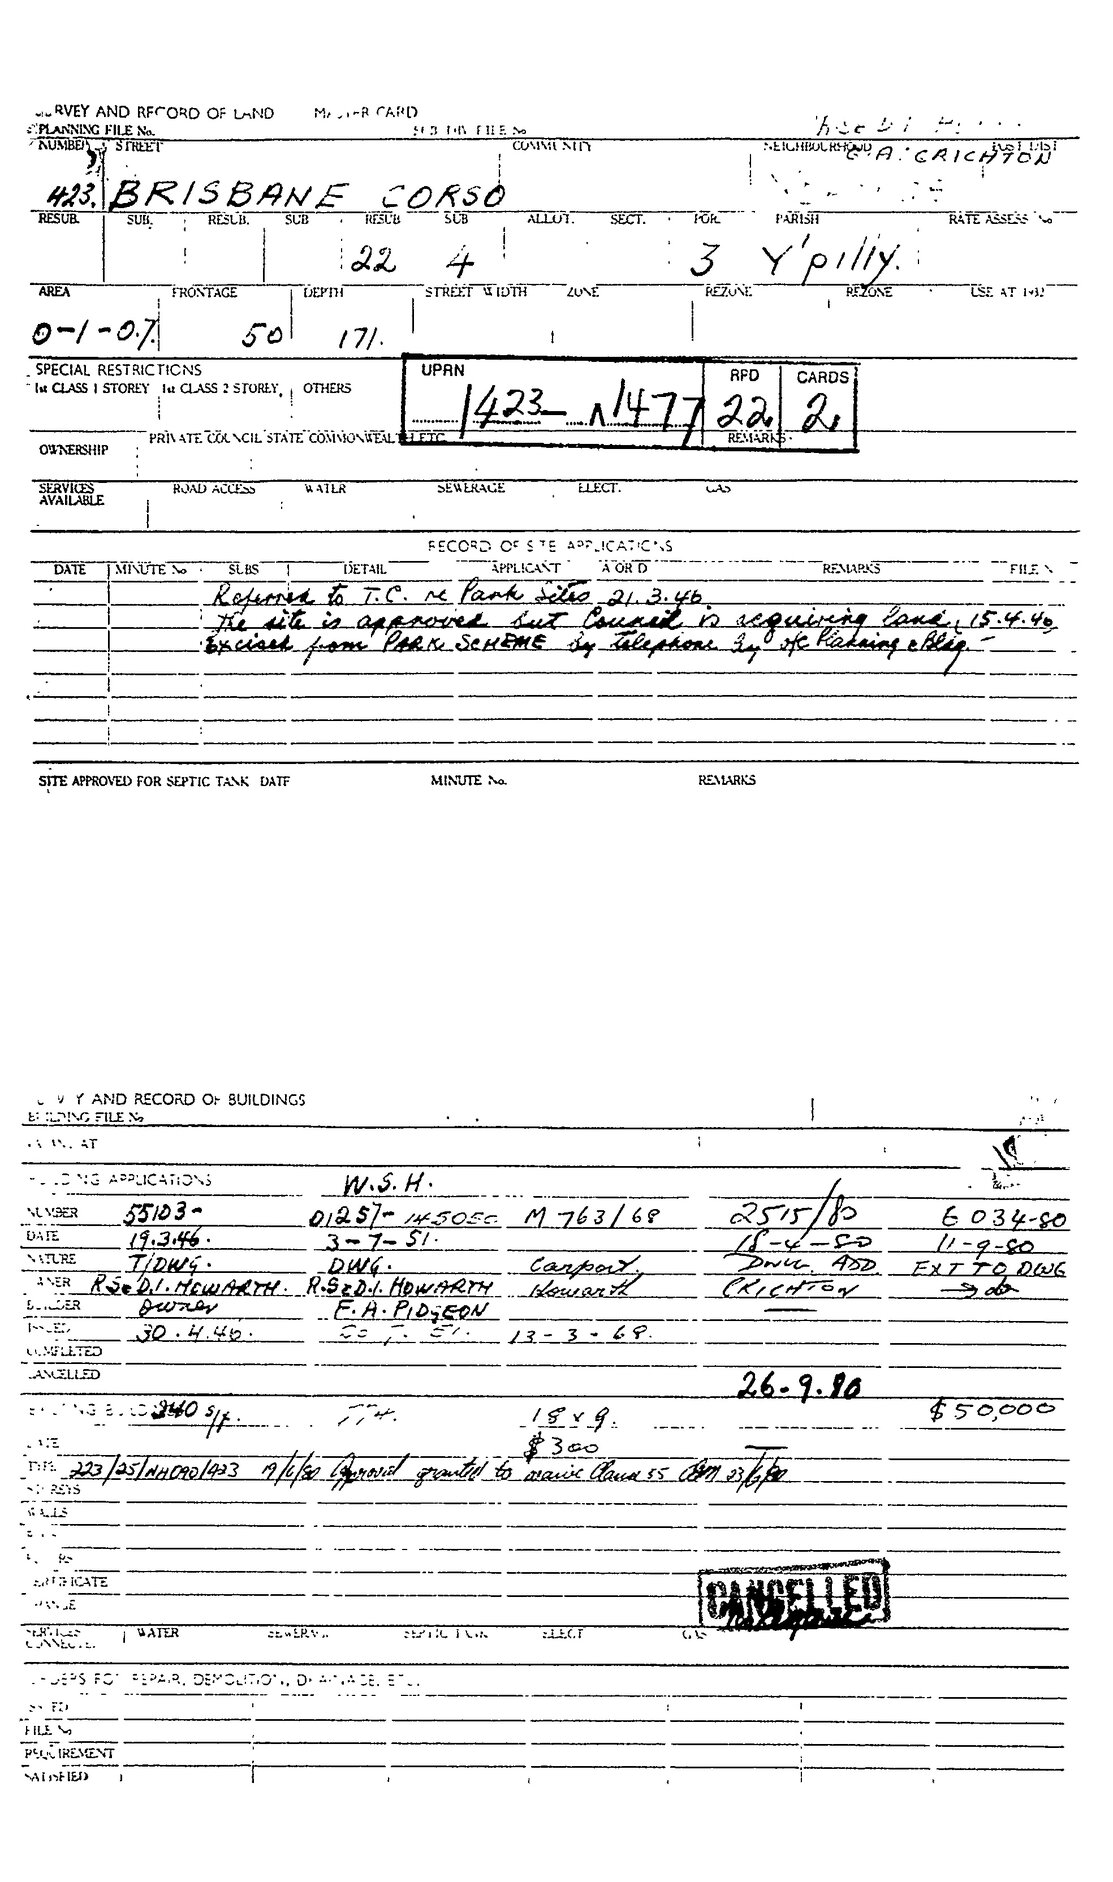 RVEY AND RECORD OF LAND
PLANNING FILE No.
NUMBER STREET COMMUNITY NEIGHBOURHOOD POST DIST
E. A. CRICHTON
423. BRISBANE CORSO
RESUB. SUB. RESUB. SUB RESUB SUB ALLOT. SECT. POR. PARISH RATE ASSESS No
22 4 3 Y'pilly.
AREA FRONTAGE DEPTH STREET WIDTH ZONE REZONE REZONE USE AT
0-1-0.7. 50 171.
SPECIAL RESTRICTIONS UPRN RPD CARDS
1st CLASS 1 STOREY 1st CLASS 2 STOREY, OTHERS
1423 1477 22 2
PRIVATE COUNCIL STATE COMMONWEALTH ETC. REMARKS
OWNERSHIP
SERVICES AVAILABLE ROAD ACCESS WATER SEWERAGE ELECT. GAS
RECORD OF SITE APPLICATIONS
DATE MINUTE No SUBS DETAIL APPLICANT A OR D REMARKS FILE N
Referred to T.C. re Park Sites 21.3.46.
The site is approved but Council is acquiring land, 15.4.46,
Excised from PARK SCHEME by telephone by o/c Planning & Bldg. -
SITE APPROVED FOR SEPTIC TANK DATE MINUTE No. REMARKS
Y AND RECORD OF BUILDINGS
BUILDING FILE No
AT
APPLICATIONS W.S.H.
NUMBER 55103- D1257- M 763/68 2515/80 6034-80
DATE 19.3.46. 3-7-51. 18-4-80 11-9-80
NATURE T/DWG. DWG. Carport. DWG. ADD. EXT TO DWG
R.S&D.I. HOWARTH. R.S&D.I. HOWARTH Howarth CRICHTON do
BUILDER Owner F. A. PIDGEON
ISSUED 30.4.46. 13-3-68.
COMPLETED
CANCELLED 26-9.80
240 s/f. 774. 18 x 9. $50,000
DATE $300
TYPE 223/25/NH090/423 19/6/80 Approval granted to waive Clause 55 23/6/80
STOREYS
WALLS
CERTIFICATE
CANCELLED
SERVICES CONNECTED WATER SEWERAGE SEPTIC TANK ELECT GAS
ORDERS FOR REPAIR, DEMOLITION, DRAINAGE, ETC.
ISSUED
FILE No
REQUIREMENT
SATISFIED